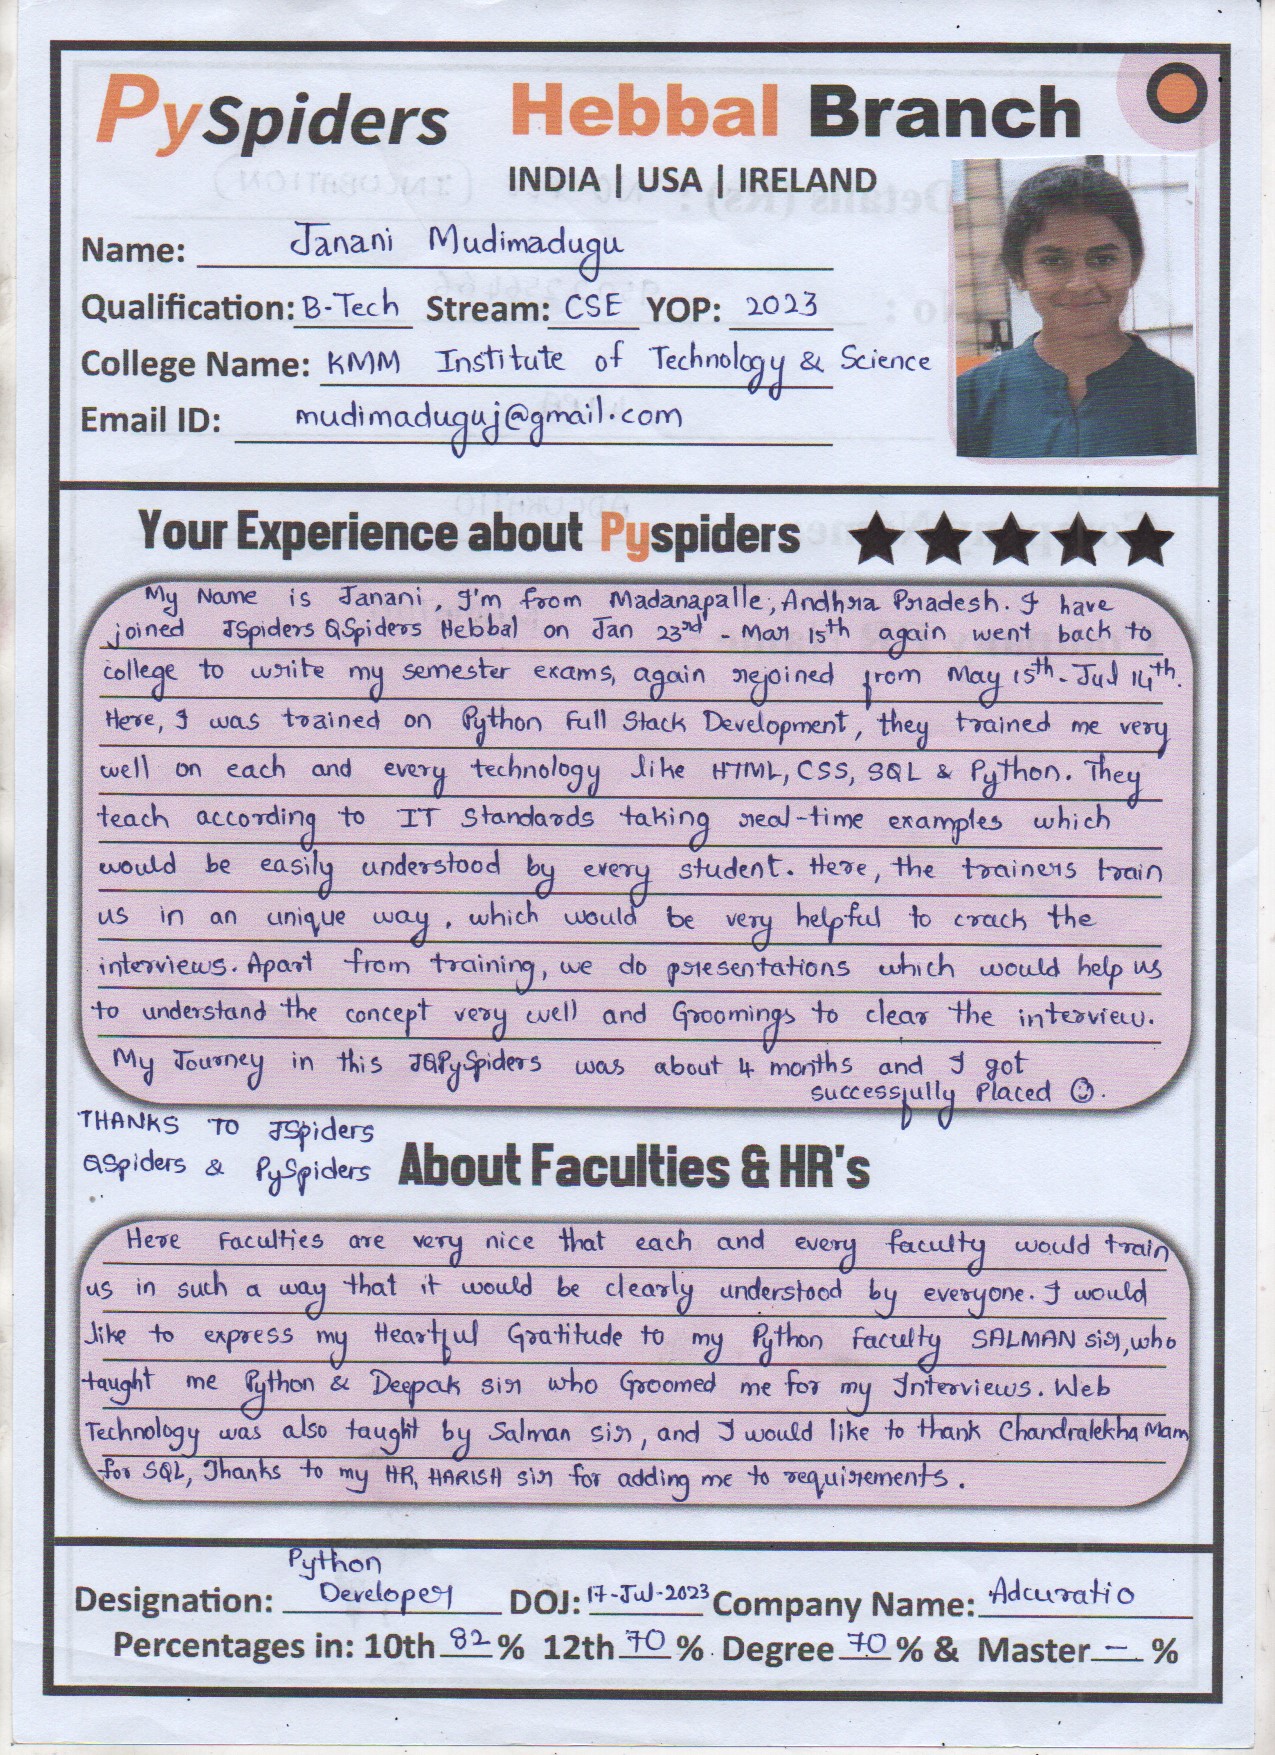 PySpiders Hebbal Branch
INDIA | USA | IRELAND
Name: Janani Mudimadugu
Qualification: B-Tech Stream: CSE YOP: 2023
College Name: KMM Institute of Technology & Science
Email ID: mudimaduguj@gmail.com
Your Experience about Pyspiders
My Name is Janani, I'm from Madanapalle, Andhra Pradesh. I have
joined JSpiders QSpiders Hebbal on Jan 23rd - Mar 15th again went back to
college to write my semester exams, again rejoined from May 15th - Jul 14th.
Here, I was trained on Python Full Stack Development, they trained me very
well on each and every technology like HTML, CSS, SQL & Python. They
teach according to IT Standards taking real-time examples which
would be easily understood by every student. Here, the trainers train
us in an unique way, which would be very helpful to crack the
interviews. Apart from training, we do presentations which would help us
to understand the concept very well and Groomings to clear the interview.
My Journey in this JQPySpiders was about 4 months and I got
successfully Placed ☺.
THANKS TO JSpiders
QSpiders & PySpiders
About Faculties & HR's
Here Faculties are very nice that each and every faculty would train
us in such a way that it would be clearly understood by everyone. I would
like to express my Heartful Gratitude to my Python Faculty SALMAN sir, who
taught me Python & Deepak sir who Groomed me for my Interviews. Web
Technology was also taught by Salman sir, and I would like to thank Chandralekha Mam
for SQL, Thanks to my HR, HARISH sir for adding me to requirements.
Python
Designation: Developer DOJ: 17-Jul-2023 Company Name: Adcuratio
Percentages in: 10th 82 % 12th 70 % Degree 70 % & Master — %